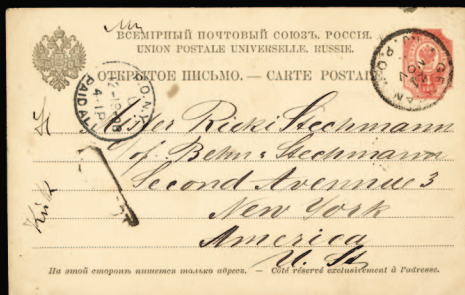 ВСЕМІРНЫЙ ПОЧТОВЫЙ СОЮЗЪ. РОССІЯ.
UNION POSTALE UNIVERSELLE. RUSSIE.
ОТКРЫТОЕ ПИСЬМО. — CARTE POSTALE
PAID
Ricki Stechmann
of Behn & Stechmann
Second Avennue 3
New York
America
U. St
На этой сторонѣ пишется только адресъ. — Côté réservé exclusivement à l'adresse.